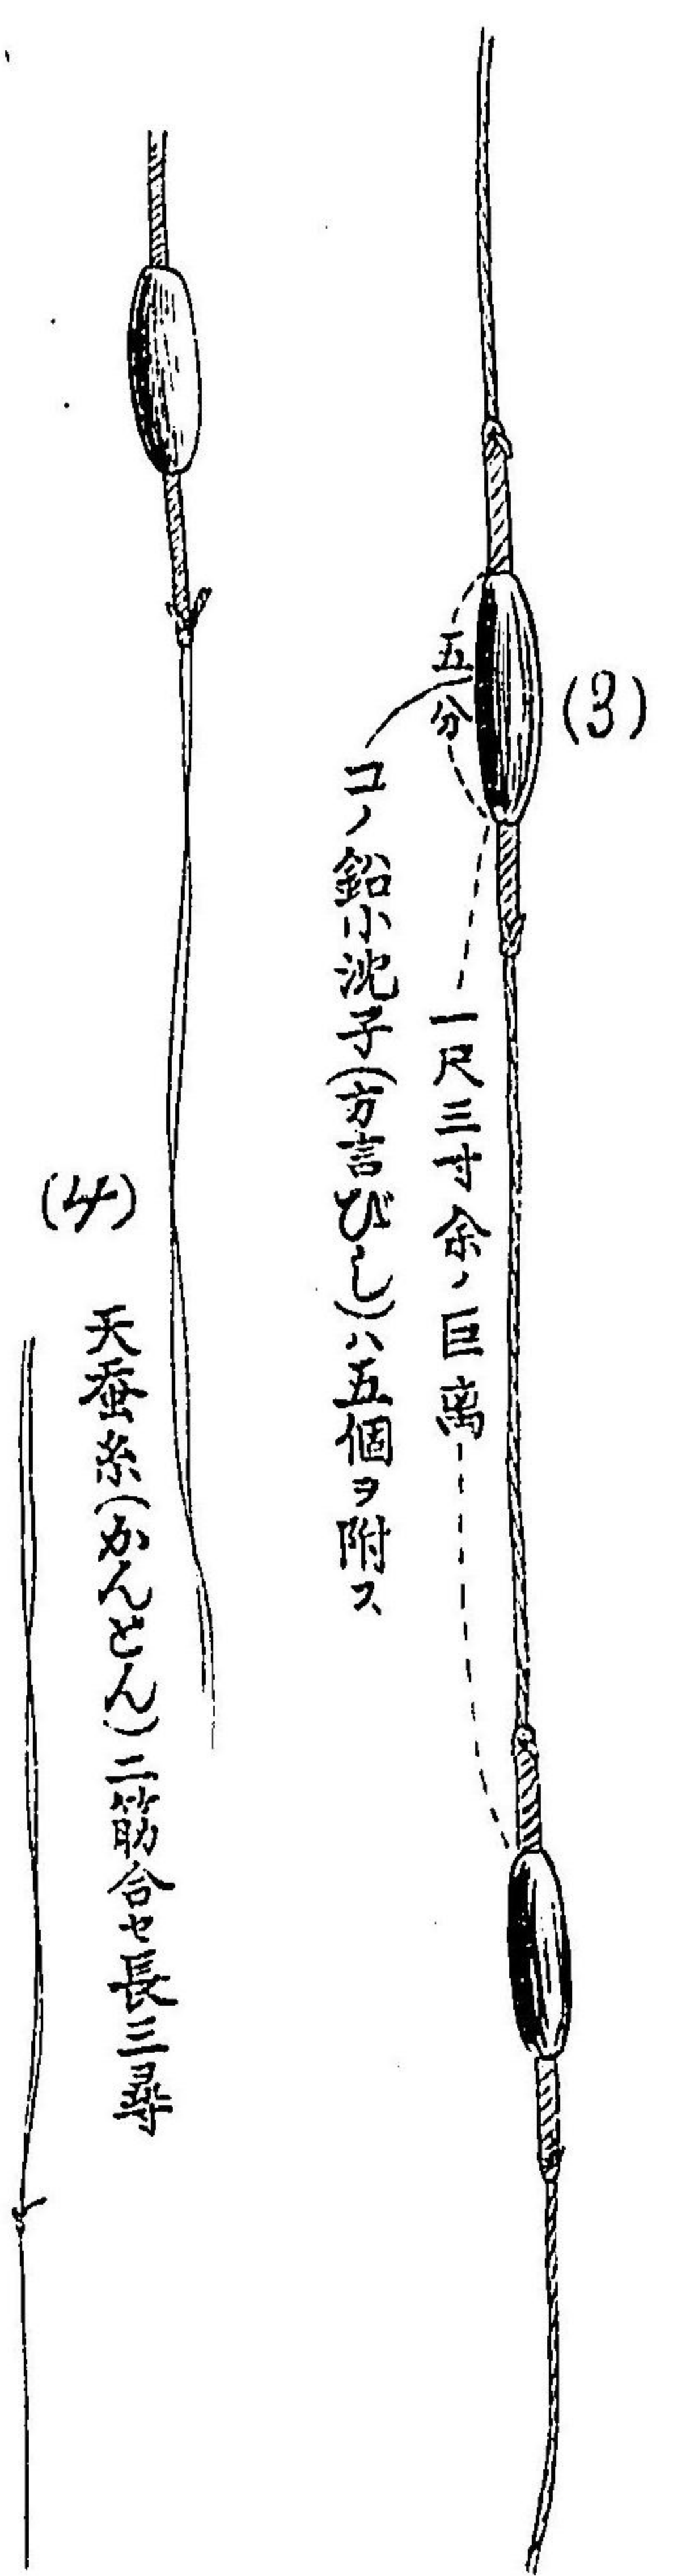 (3)
五分
一尺三寸余ノ巨离
コノ鉛小沈子(方言びし)ハ五個ヲ附ス
(4)
天蚕糸(かんとん)二筋合セ長三尋